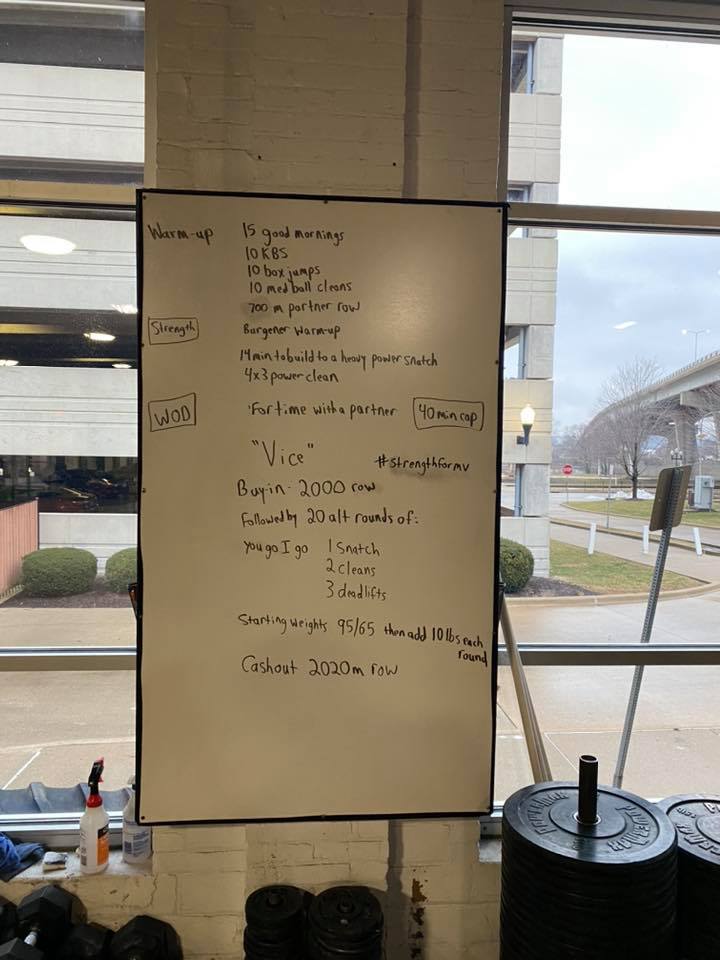 Warm-up 15 good mornings
10 KBS
10 box jumps
10 med ball cleans
700 m partner row
Strength Burgener Warm-up
14 min to build to a heavy power snatch
4x3 power clean
WOD For time with a partner 40 min cap
"Vice" #strengthformv
Buy-in - 2000 row
Followed by 20 alt rounds of:
You go I go 1 Snatch
2 cleans
3 deadlifts
Starting weights 95/65 then add 10 lbs each
round
Cashout 2020m row